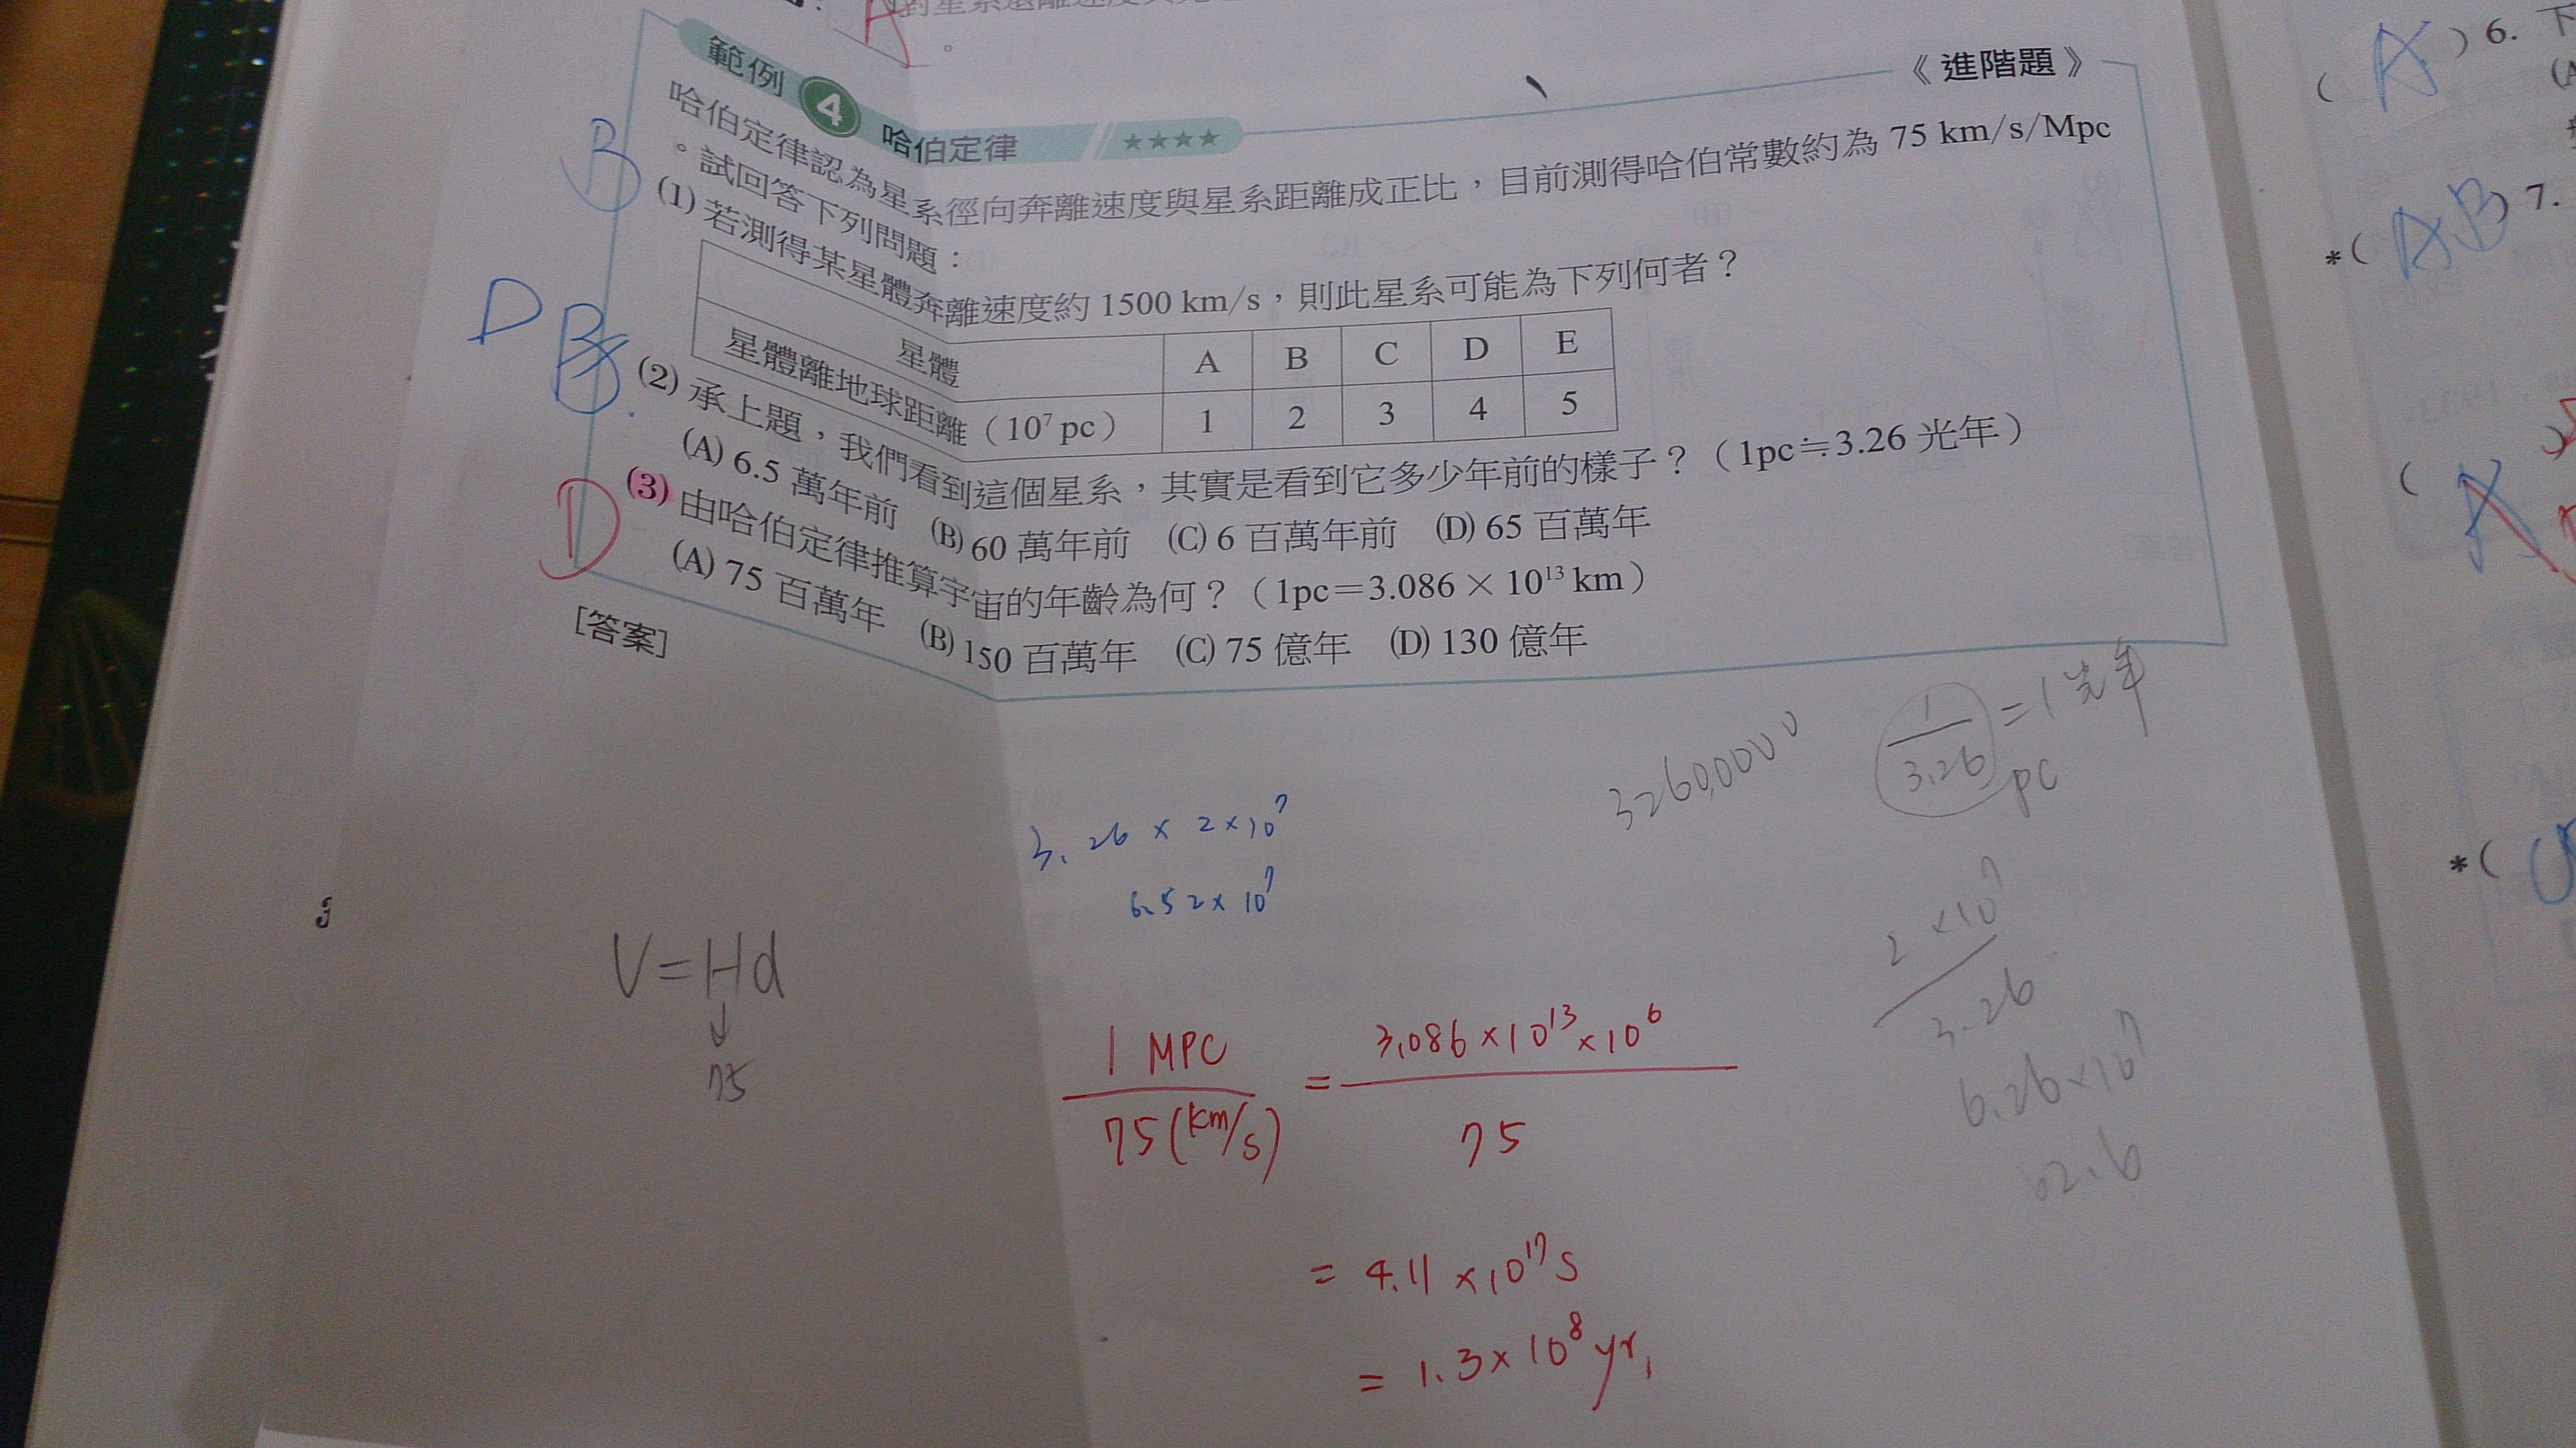 A
對星系遠離速度與
。
範例 4 哈伯定律 ★★★★
《進階題》
哈伯定律認為星系徑向奔離速度與星系距離成正比，目前測得哈伯常數約為 75 km/s/Mpc
。試回答下列問題：
B
(1) 若測得某星體奔離速度約 1500 km/s，則此星系可能為下列何者？
星體 A B C D E
星體離地球距離（10⁷ pc） 1 2 3 4 5
D
(2) 承上題，我們看到這個星系，其實是看到它多少年前的樣子？（1pc≒3.26 光年）
(A) 6.5 萬年前 (B) 60 萬年前 (C) 6 百萬年前 (D) 65 百萬年
D
(3) 由哈伯定律推算宇宙的年齡為何？（1pc＝3.086 × 10¹³ km）
(A) 75 百萬年 (B) 150 百萬年 (C) 75 億年 (D) 130 億年
[答案]
3.26 × 2×10⁷
6.52×10⁷
32600000
1/3.26 pc = 1光年
2×10⁷/3.26
6.26×10⁷
62.6
V=Hd
↓
75
1 MPC / 75(km/s) = 3.086×10¹³×10⁶ / 75
= 4.11 ×10¹⁷ s
= 1.3×10⁸ yr,
( A ) 6. 下
(A
*( AB ) 7.
(
*(